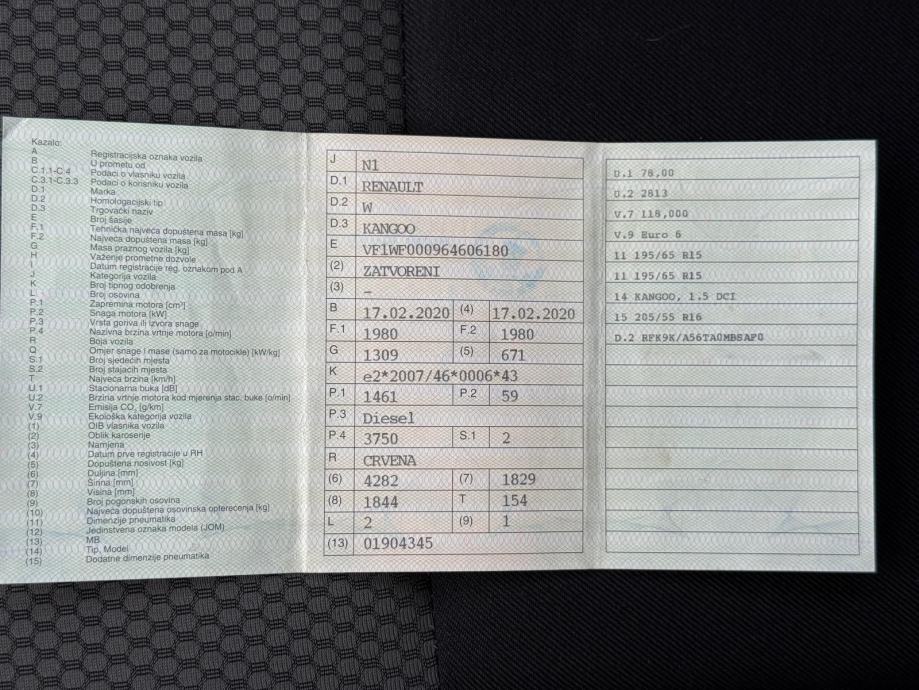 Kazalo:
A Registracijska oznaka vozila
B U prometu od
C.1.1-C.4 Podaci o vlasniku vozila
C.3.1-C.3.3 Podaci o korisniku vozila
D.1 Marka
D.2 Homologacijski tip
D.3 Trgovački naziv
E Broj šasije
F.1 Tehnička najveća dopuštena masa [kg]
F.2 Najveća dopuštena masa [kg]
G Masa praznog vozila [kg]
H Važenje prometne dozvole
I Datum registracije reg. oznakom pod A
J Kategorija vozila
K Broj tipnog odobrenja
L Broj osovina
P.1 Zapremina motora [cm³]
P.2 Snaga motora [kW]
P.3 Vrsta goriva ili izvora snage
P.4 Nazivna brzina vrtnje motora [o/min]
R Boja vozila
Q Omjer snage i mase (samo za motocikle) [kW/kg]
S.1 Broj sjedećih mjesta
S.2 Broj stajaćih mjesta
T Najveća brzina [km/h]
U.1 Stacionarna buka [dB]
U.2 Brzina vrtnje motora kod mjerenja stac. buke [o/min]
V.7 Emisija CO₂ [g/km]
V.9 Ekološka kategorija vozila
(1) OIB vlasnika vozila
(2) Oblik karoserije
(3) Namjena
(4) Datum prve registracije u RH
(5) Dopuštena nosivost [kg]
(6) Duljina [mm]
(7) Širina [mm]
(8) Visina [mm]
(9) Broj pogonskih osovina
(10) Najveća dopuštena osovinska opterećenja [kg]
(11) Dimenzije pneumatika
(12) Jedinstvena oznaka modela (JOM)
(13) MB
(14) Tip, Model
(15) Dodatne dimenzije pneumatika
J N1
D.1 RENAULT
D.2 W
D.3 KANGOO
E VF1WF000964606180
(2) ZATVORENI
(3) –
B 17.02.2020 (4) 17.02.2020
F.1 1980 F.2 1980
G 1309 (5) 671
K e2*2007/46*0006*43
P.1 1461 P.2 59
P.3 Diesel
P.4 3750 S.1 2
R CRVENA
(6) 4282 (7) 1829
(8) 1844 T 154
L 2 (9) 1
(13) 01904345
U.1 78,00
U.2 2813
V.7 118,000
V.9 Euro 6
11 195/65 R15
11 195/65 R15
14 KANGOO, 1.5 DCI
15 205/55 R16
D.2 RFK9K/A56TA0MBSAF0